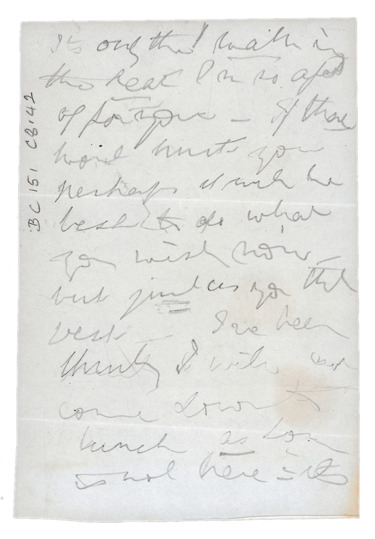 It's only the walk in
the heat I'm so afraid
of for you - If those
word hurts you
perhaps it will be
best to do what
you wish now -
but just as you think
best - I've been
thinking I will
come down to
lunch as Lou
is not here - its
BC 151 C8:42